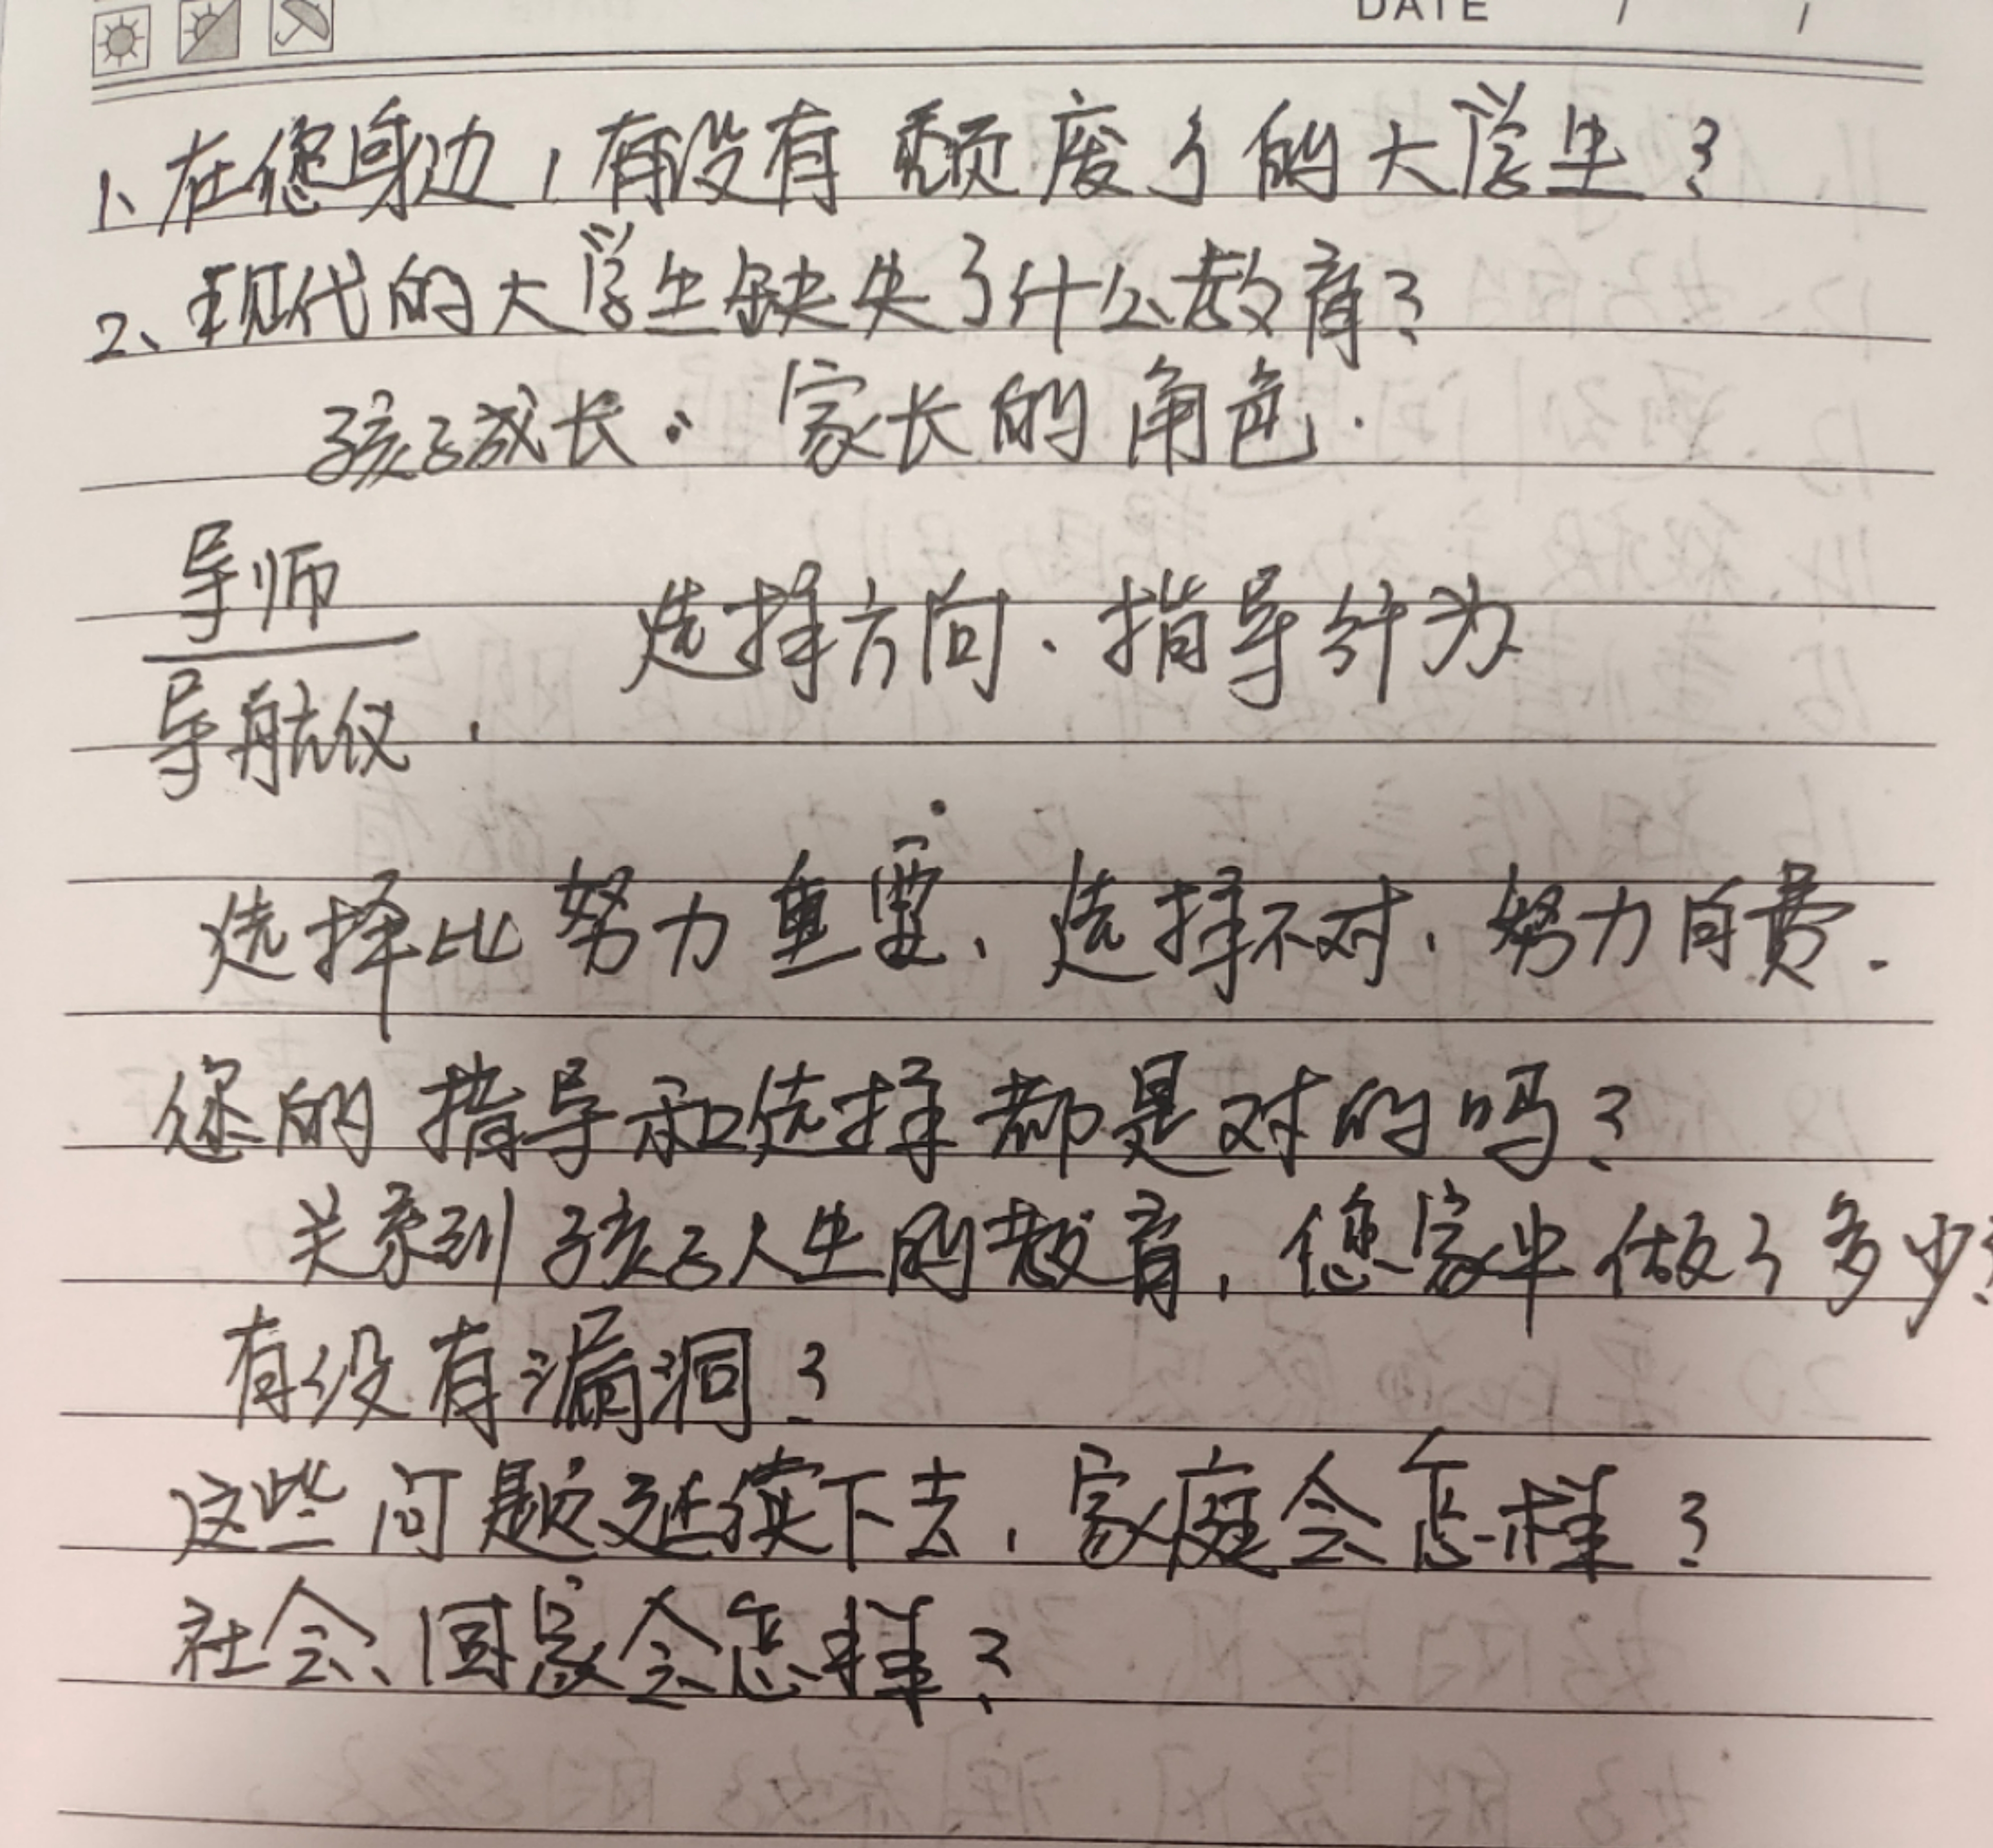 DATE / /
1、在您身边，有没有颓废了的大学生？
2、现代的大学生缺失了什么教育？
孩子成长：家长的角色.
导师
选择方向、指导行为
导航仪.
选择比努力重要、选择不对，努力白费.
您的指导和选择都是对的吗？
关系到孩子人生的教育，您家中做了多少？
有没有漏洞？
这些问题延续下去，家庭会怎样？
社会、国家会怎样？